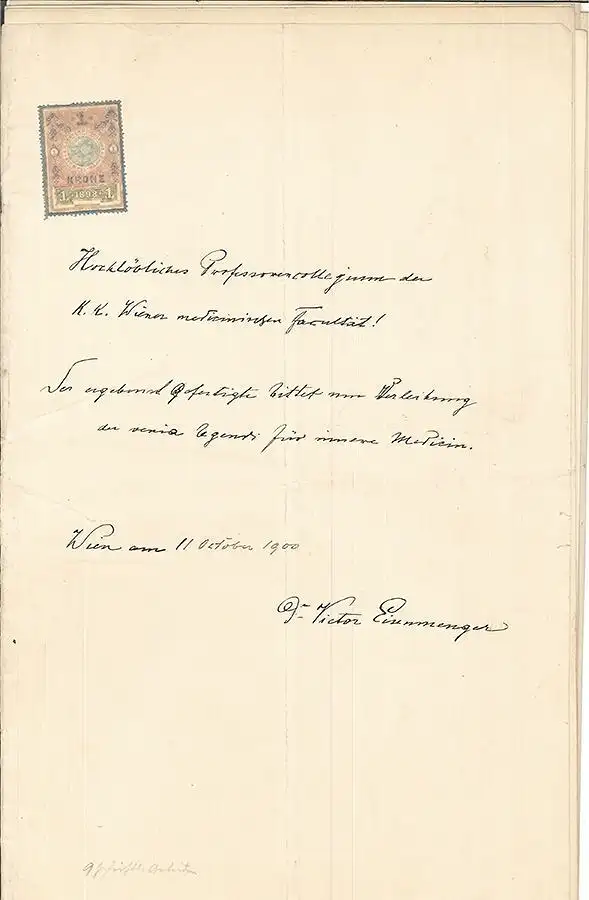 1
KRONE
1 1898 1
Hochlöbliches Professorencollegium der
K. K. Wiener medicinischen Facultät!
Der ergebenst Gefertigte bittet um Verleihung
der venia legendi für innere Medicin.
Wien am 11 October 1900
Dr Victor Eisenmenger